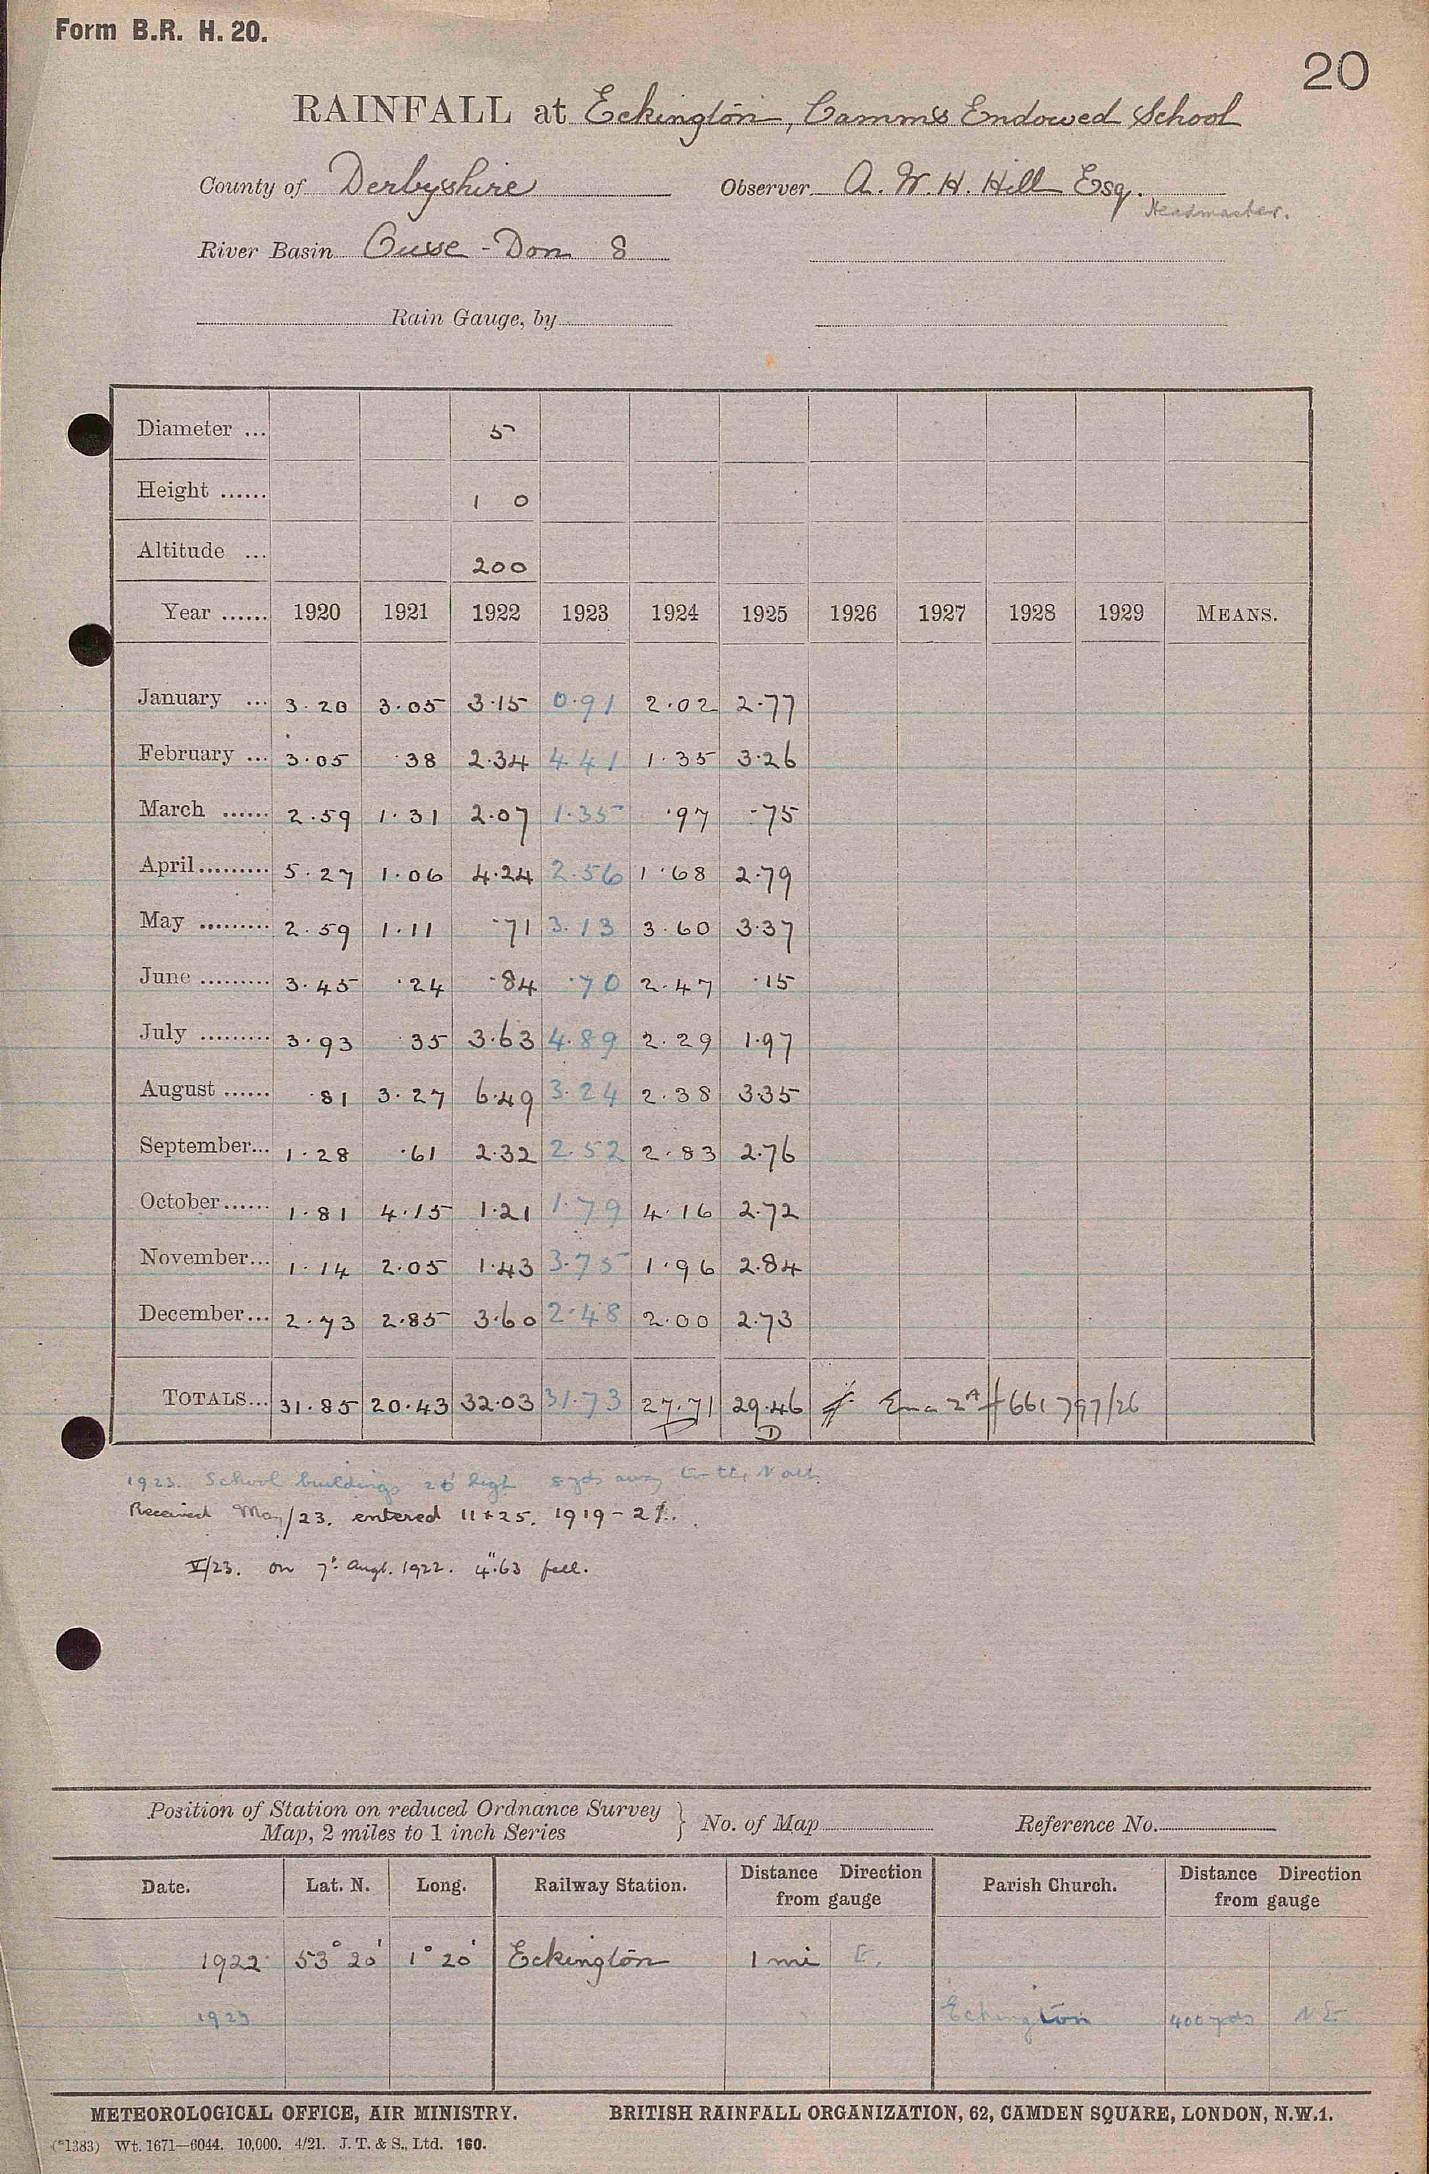 Form B.R. H. 20.
20
RAINFALL at Eckington, Camms Endowed School
County of Derbyshire Observer A. W. H. Hill Esq.
Headmaster.
River Basin Ouse - Don 8
Rain Gauge, by
Diameter ... 5
Height ...... 1 0
Altitude ... 200
Year ...... 1920 1921 1922 1923 1924 1925 1926 1927 1928 1929 MEANS.
January ... 3.20 3.05 3.15 0.91 2.02 2.77
February ... 3.05 .38 2.34 4.41 1.35 3.26
March ...... 2.59 1.31 2.07 1.35 .97 .75
April......... 5.27 1.06 4.24 2.56 1.68 2.79
May ......... 2.59 1.11 .71 3.13 3.60 3.37
June ......... 3.45 .24 .84 .70 2.47 .15
July ......... 3.93 35 3.63 4.89 2.29 1.97
August ...... .81 3.27 6.49 3.24 2.38 3.35
September... 1.28 .61 2.32 2.52 2.83 2.76
October...... 1.81 4.15 1.21 1.79 4.16 2.72
November... 1.14 2.05 1.43 3.75 1.96 2.84
December... 2.73 2.85 3.60 2.48 2.00 2.73
TOTALS... 31.85 20.43 32.03 31.73 27.71 29.46 661797/26
D D
1923. School buildings high 8 yds away to the North
Received May/23. entered 11+25. 1919-21.
V/23. on 7th Augt. 1922. 4".63 fell.
Position of Station on reduced Ordnance Survey
Map, 2 miles to 1 inch Series } No. of Map Reference No.
Date. Lat. N. Long. Railway Station. Distance Direction from gauge Parish Church. Distance Direction from gauge
1922 53° 20' 1° 20' Eckington 1 mi E.
1923 Eckington 400 yds NE
METEOROLOGICAL OFFICE, AIR MINISTRY. BRITISH RAINFALL ORGANIZATION, 62, CAMDEN SQUARE, LONDON, N.W.1.
(*1383) Wt. 1671—6044. 10,000. 4/21. J. T. & S., Ltd. 160.